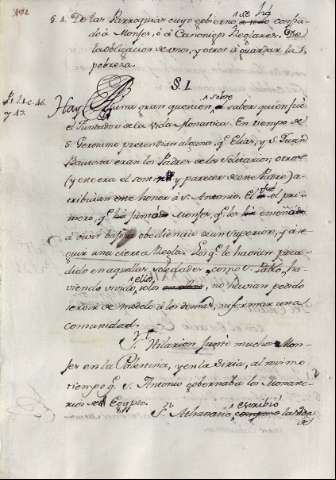 §. 2. De las Parroquias cuyo gobierno se ha confia-
do à Monjes, ò à Canonigos Reglares. De
la obligacion de unos, y otros à guardar la
pobreza.
§. I.
Hay una gran question sobre saber quien fue
el Fundador de la Vida Monastica. En tiempo de
S. Geronimo pretendian algunos, q.e Elias, y S. Juan
Bautista eran los Padres de la Solitarios; otros
(y en es era el sentir y parecer de este Padre) a-
tribuian este honor à S. Antonio. El fue el pri-
mero, q.e Monjes, q.e los enseñó
à vivir bajo la obediencia de un Superior, y à se-
guir una cierta Regla. Los q.e le havian prece-
dido en aquellas soledades, como S. Pablo, ha-
viendo vivido solo, no havian podido
servir de modelo à los demas, ni formar una
comunidad.
S. Hilarion juntó muchos Mon-
jes en la Palestina, y en la Siria, al mismo
tiempo q.e S. Antonio gobernaba los Monaste-
rios de Egypto.
S. Athanasio escribió la Vida
de